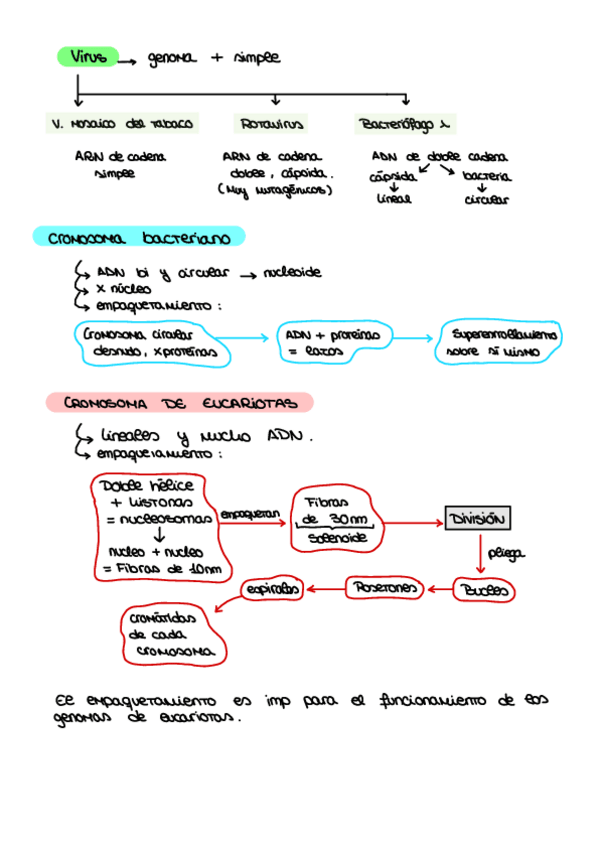 Virus → genoma + simple
V. Mosaico del Tabaco
Rotavirus
Bacteriófago λ
ARN de cadena
simple
ARN de cadena
doble, cápsida.
(Muy mutagénicos)
ADN de doble cadena
cápsida
bacteria
lineal
circular
Cromosoma bacteriano
ADN bi y circular → nucleoide
x núcleo
empaquetamiento:
Cromosoma circular
desnudo, x proteínas
ADN + proteínas
= lazos
Superenrollamiento
sobre sí mismo
CROMOSOMA DE EUCARIOTAS
lineales y mucho ADN.
empaquetamiento:
Doble hélice
+ histonas
= nucleosomas
nucleo + nucleo
= Fibras de 10nm
empaquetan
Fibras
de 30nm
solenoide
División
pliega
Bucles
Rosetones
espirales
cromátidas
de cada
cromosoma
El empaquetamiento es imp para el funcionamiento de los
genomas de eucariotas.